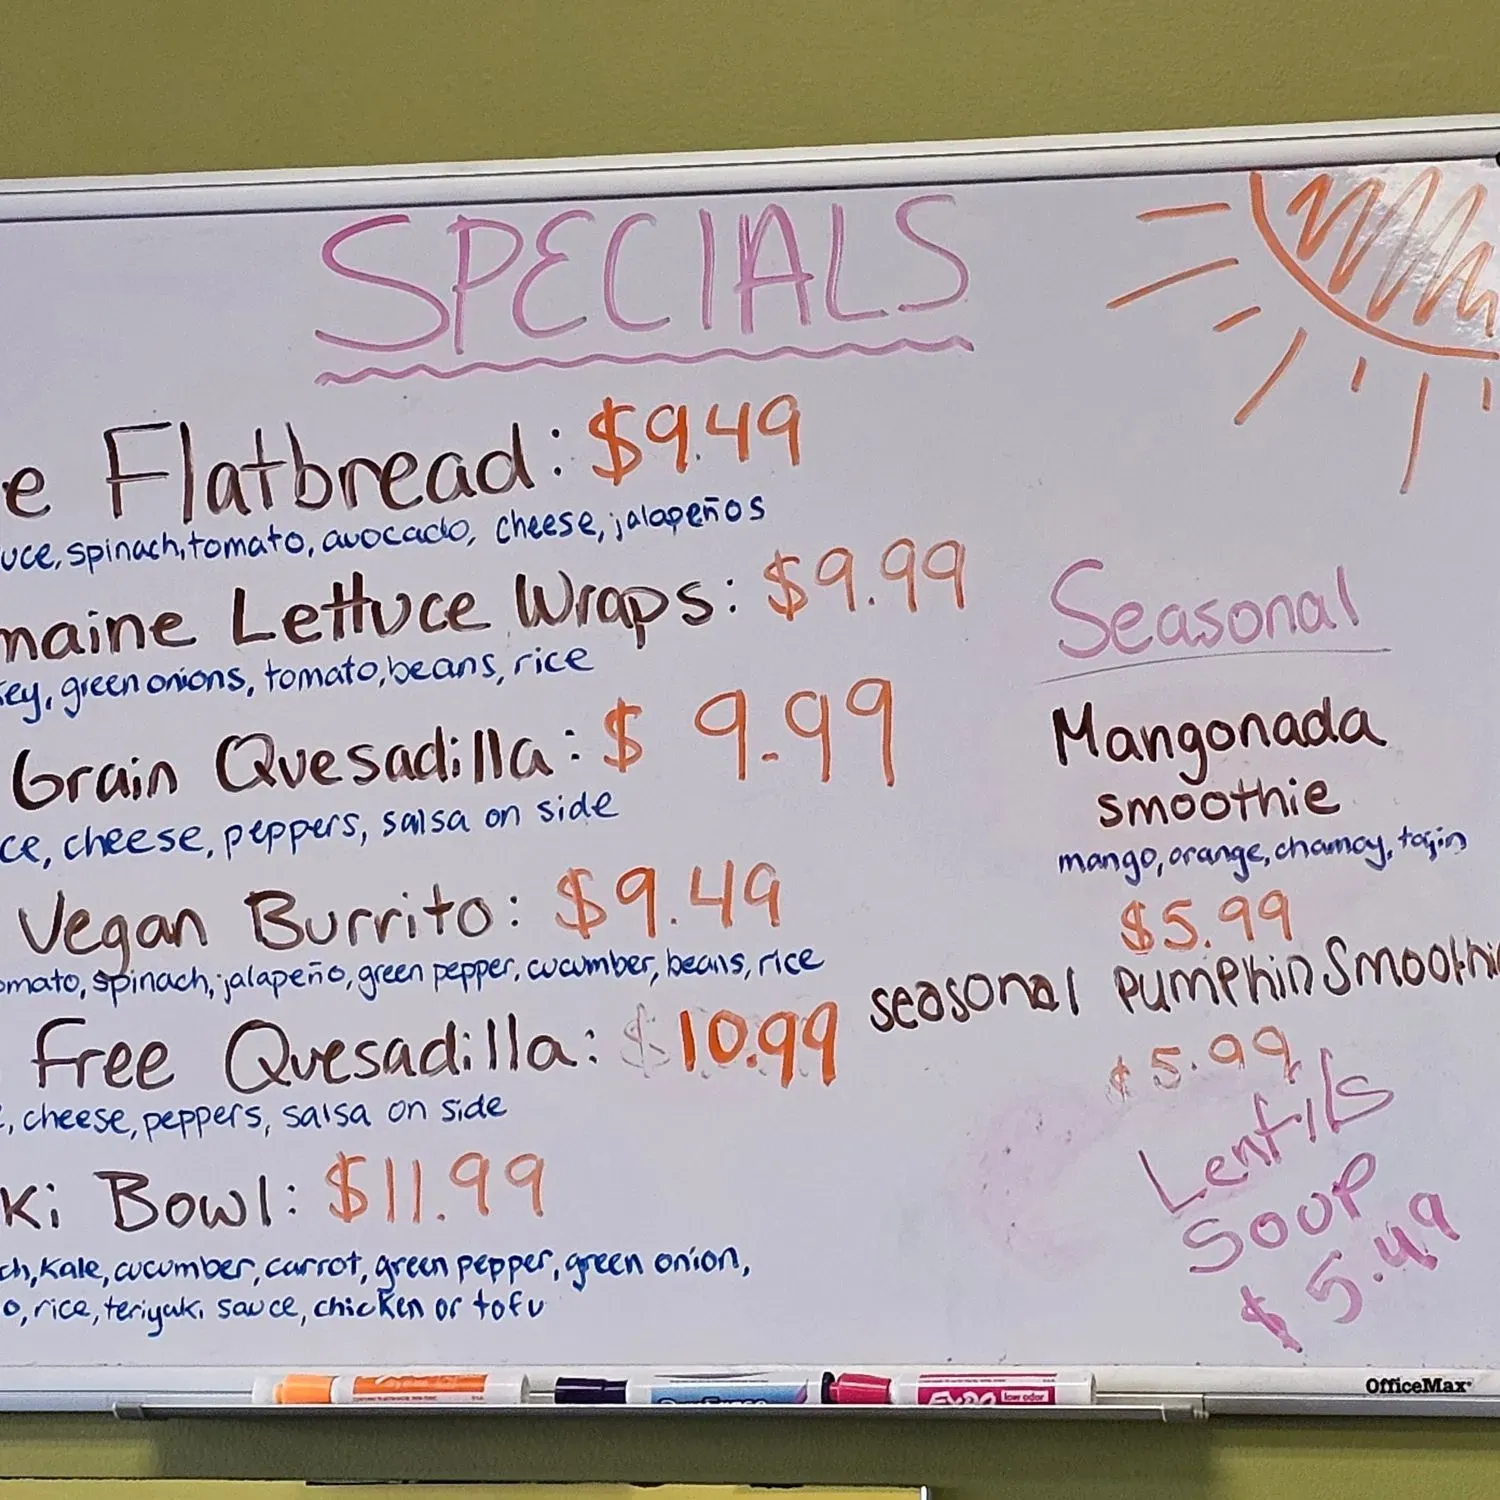 SPECIALS
e Flatbread: $9.49
uce, spinach, tomato, avocado, cheese, jalapeños
maine Lettuce Wraps: $9.99
key, green onions, tomato, beans, rice
Grain Quesadilla: $ 9.99
ce, cheese, peppers, salsa on side
Vegan Burrito: $9.49
omato, spinach, jalapeño, green pepper, cucumber, beans, rice
Free Quesadilla: $10.99
, cheese, peppers, salsa on side
ki Bowl: $11.99
ch, kale, cucumber, carrot, green pepper, green onion,
o, rice, teriyaki sauce, chicken or tofu
Seasonal
Mangonada
smoothie
mango, orange, chamoy, tajin
$5.99
seasonal pumpkin Smoothi
$5.99
Lentils
Soup
$5.49
EXPO low odor
OfficeMax